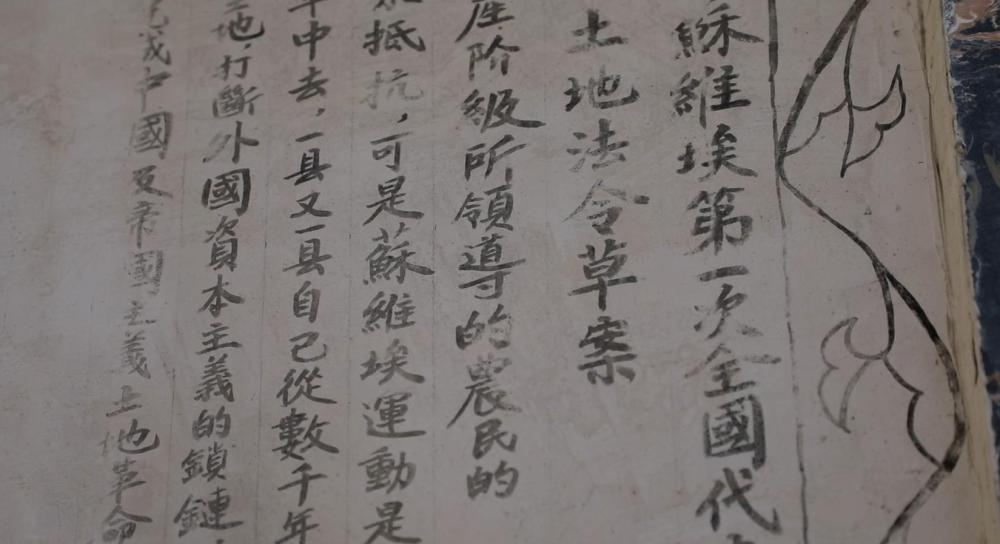 蘇維埃第一次全國代
土地法令草案
產阶級所領導的農民的
抵抗，可是蘇維埃運動是
中去，一县又一县自己從數千年
地，打斷外國資本主義的鎖鏈，
成中國反帝國主義土地革命